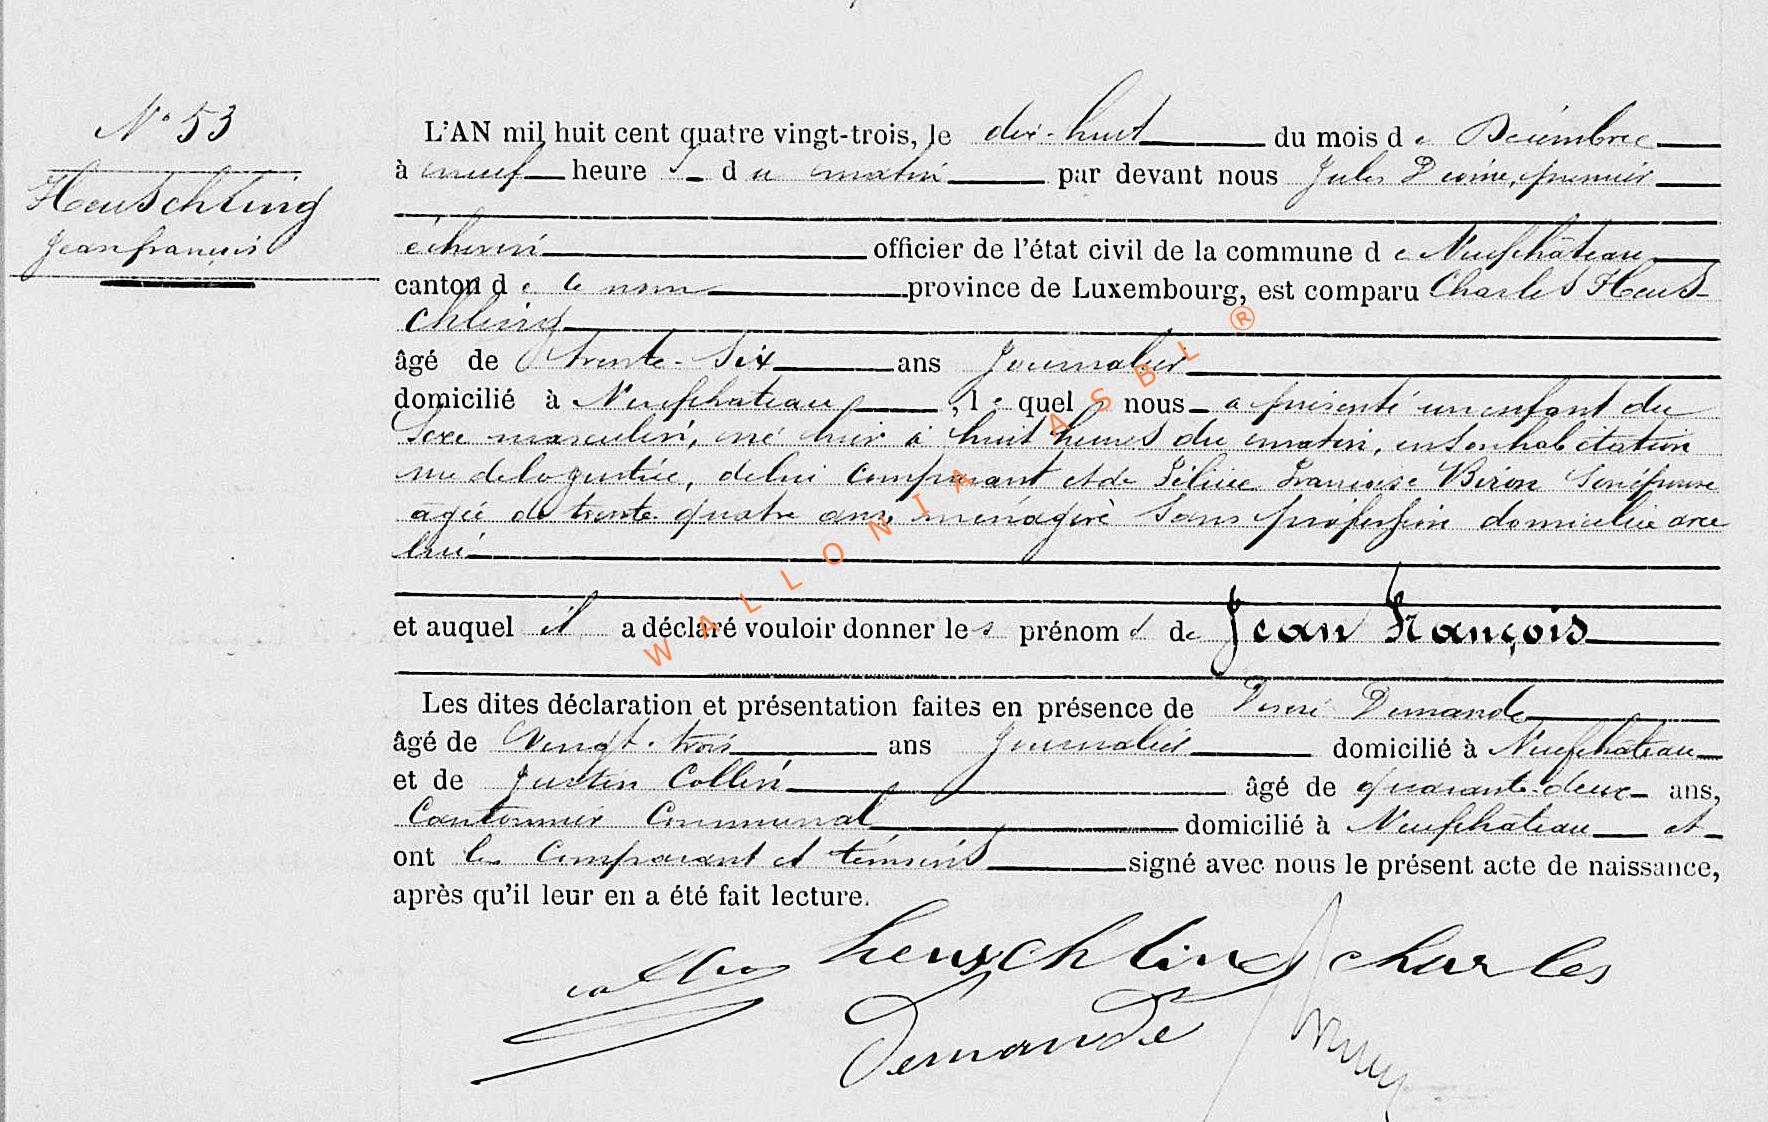 N° 53
Heuschling
Jean françois
L'AN mil huit cent quatre vingt-trois, le dix-huit du mois de Décembre
à neuf heures du matin par devant nous Jules premier
échevin officier de l'état civil de la commune de Neufchâteau
canton de ce nom province de Luxembourg, est comparu Charles Heus-
chling
âgé de trente-six ans Journalier
domicilié à Neufchateau, lequel nous a présenté un enfant du
Sexe masculin, né hier à huit heures du matin, en son habitation
rue de la justice, de lui comparant et de Françoise Biron son épouse
agée de trente quatre ans, ménagère sans profession domiciliée avec
lui
et auquel il a déclaré vouloir donner les prénoms de Jean François
Les dites déclaration et présentation faites en présence de Désiré Demande
âgé de Vingt-trois ans Journalier domicilié à Neufchâteau
et de Justin Collin âgé de quarante-deux ans,
Cantonnier Communal domicilié à Neufchâteau et
ont les comparant et témoins signé avec nous le présent acte de naissance,
après qu'il leur en a été fait lecture.
heuschling charles
Demande
WALLONIA ASBL ®